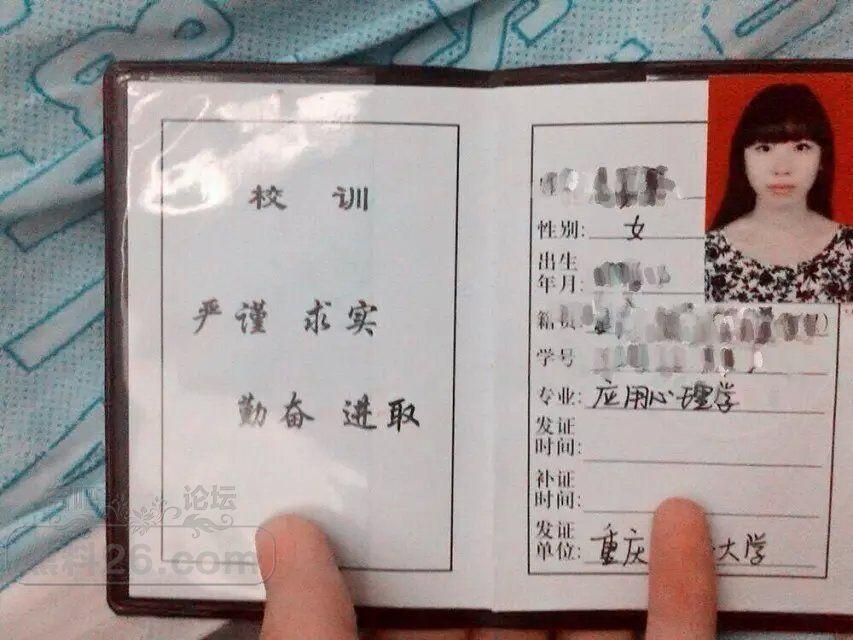 校 训
严谨 求实
勤奋 进取
性别: 女
出生
年月:
籍贯
学号
专业: 应用心理学
发证
时间:
补证
时间:
发证
单位: 重庆 大学
论坛
料26.com